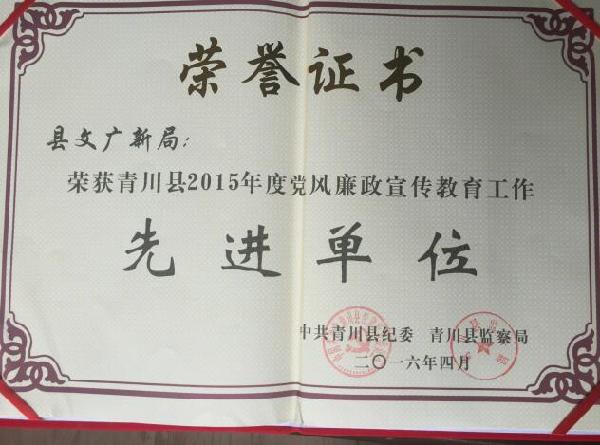 荣誉证书
县文广新局:
荣获青川县2015年度党风廉政宣传教育工作
先进单位
中共青川县纪委 青川县监察局
二〇一六年四月